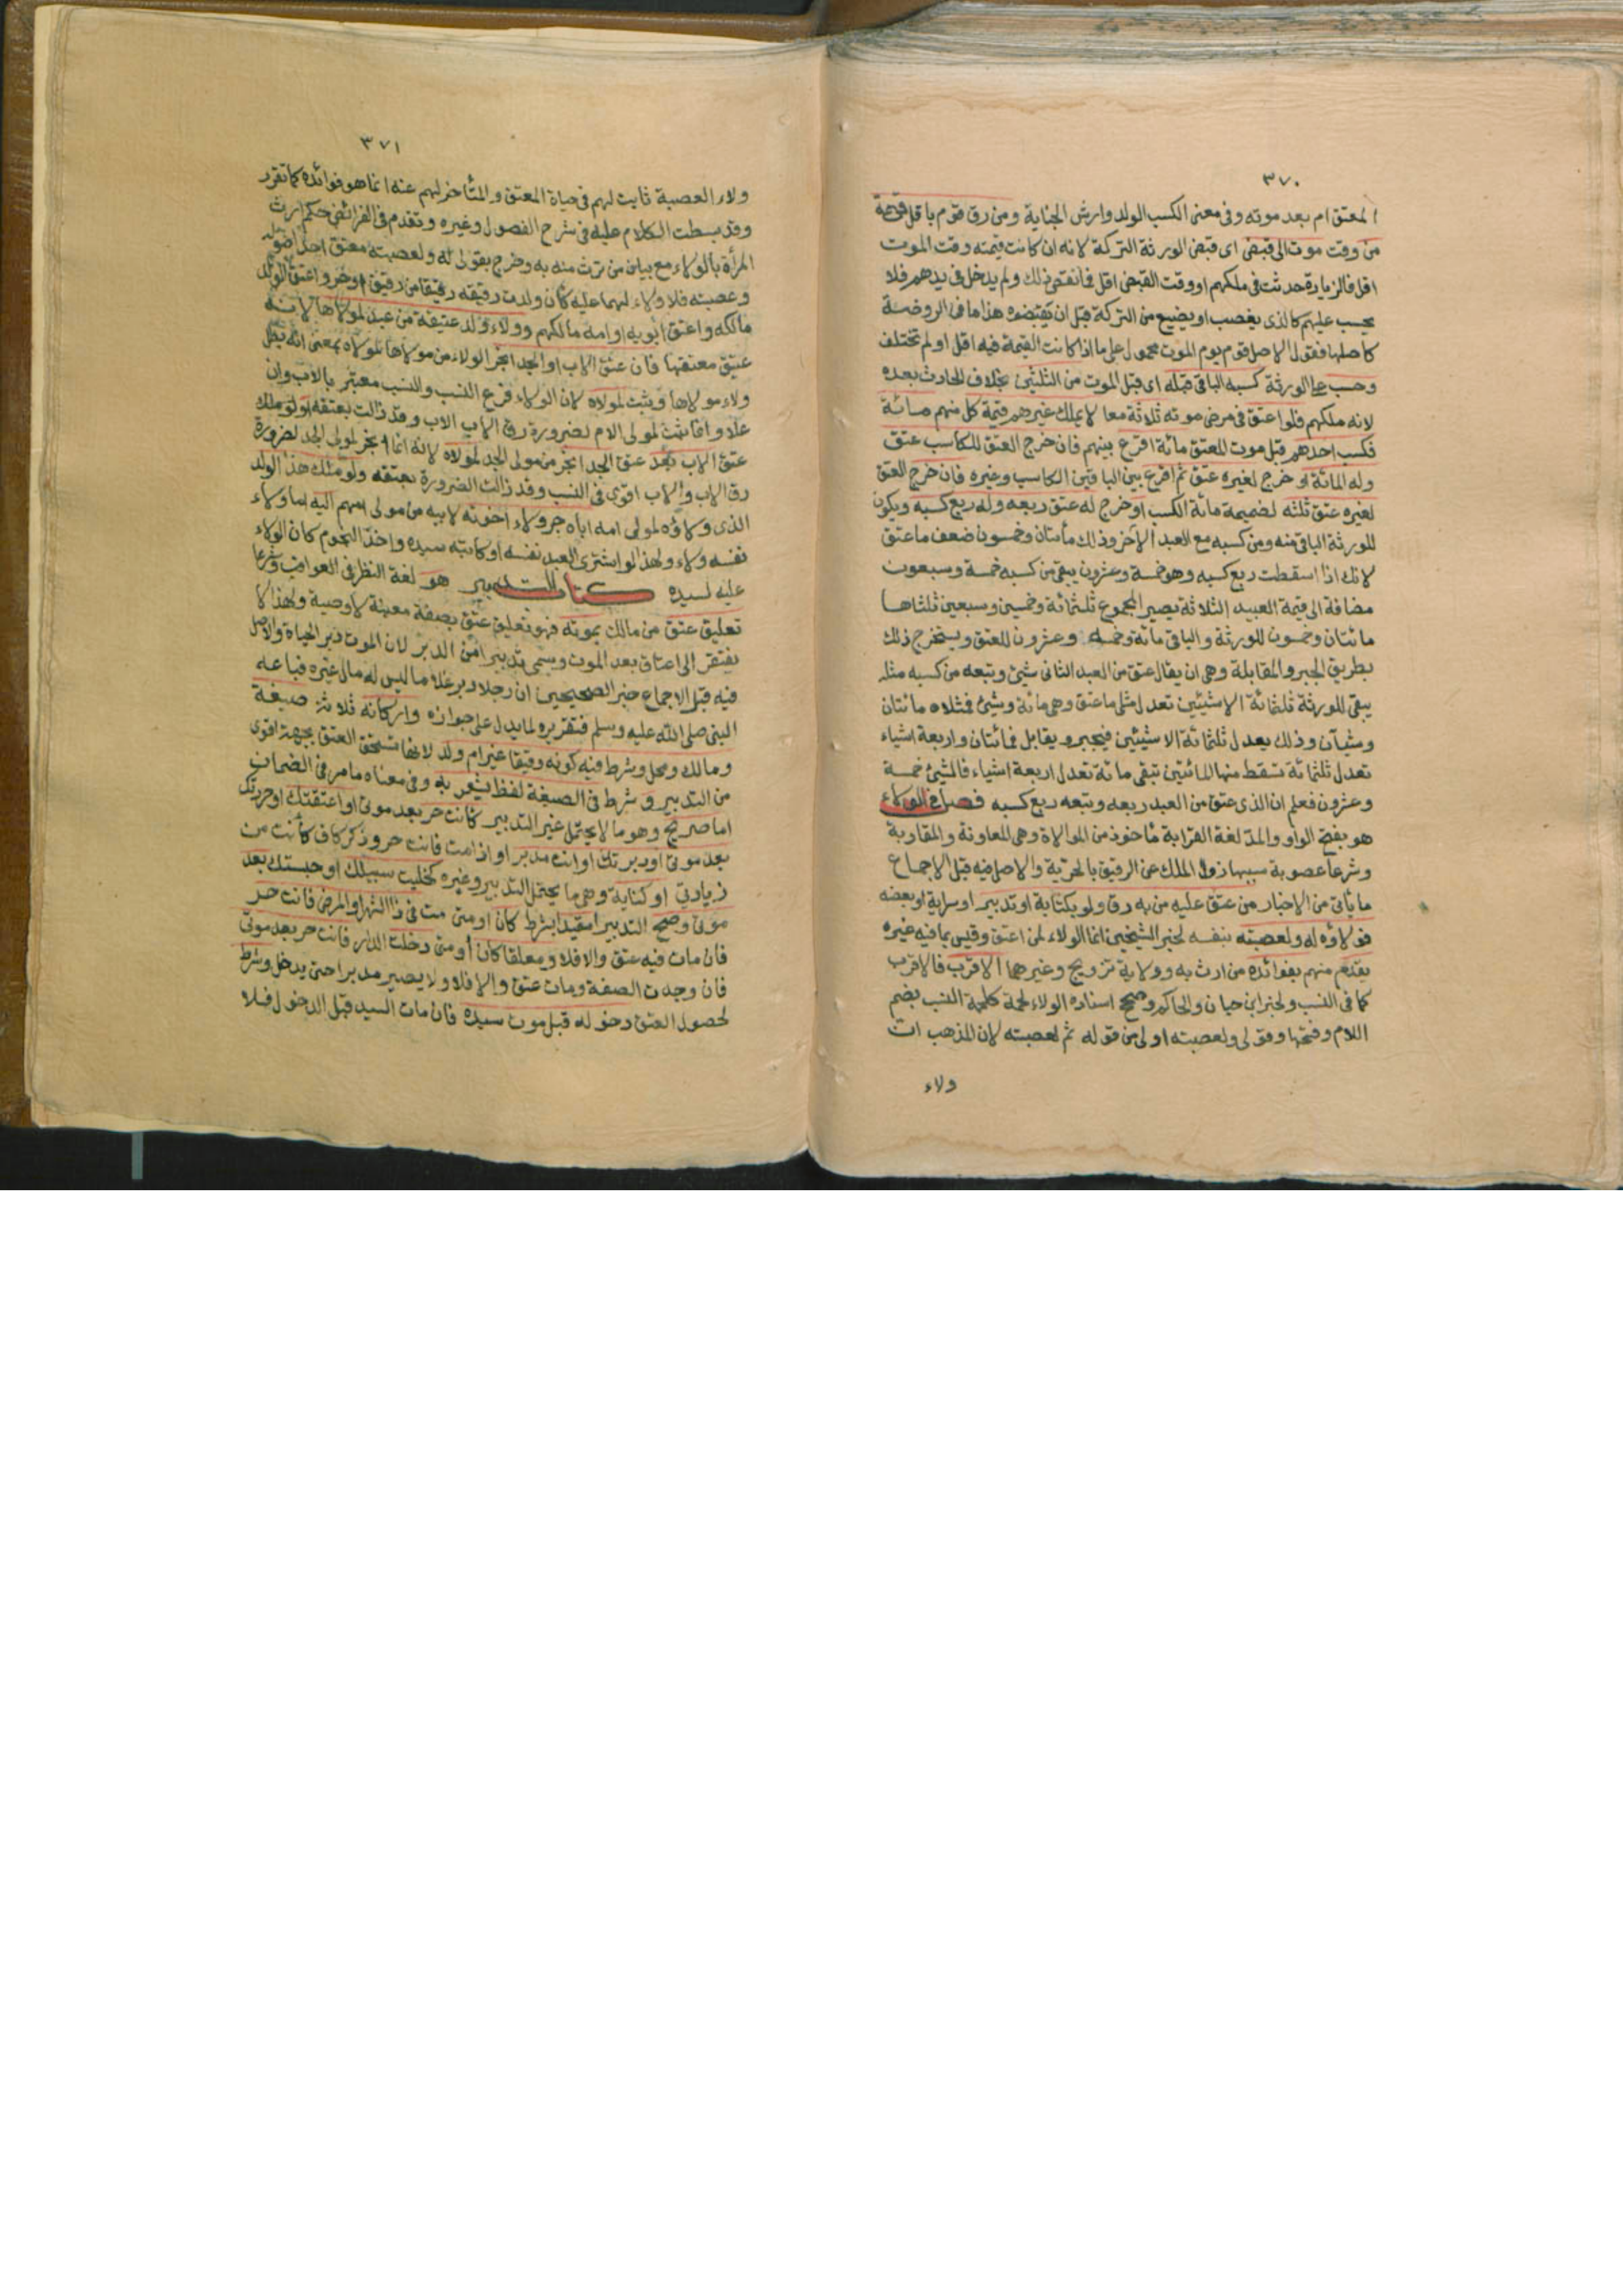 ٣٧٠
المعتق ام بعد موته وفى معنى الكسب الولد وارش الجناية ومن رق قوم باقل قيمة
من وقت موت الى قبض اى قبض الورثة التركة لانه ان كانت قيمته وقت الموت
اقل فالزيادة حدثت فى ملكهم او وقت القبض اقل فما نقص ذلك ولم يدخل فى يدهم فلا
يحسب عليهم كالذى يغصب او يضيع من التركة قبل ان يقبضوه هذا ما فى الروضة
كاصلها فقول الاصل قوم يوم الموت محمول على ما اذا كانت القيمة فيه اقل او لم تختلف
وحسب على الورثة كسبه الباقى قبله اى قبل الموت من الثلثين بخلاف الحادث بعده
لانه ملكهم فلو اعتق فى مرض موته ثلاثة معا لا يملك غيرهم قيمة كل منهم مائة
فكسب احدهم قبل موت المعتق مائة اقرع بينهم فان خرج العتق للكاسب عتق
وله المائة او خرج لغيره عتق ثم اقرع بين الباقين الكاسب وغيره فان خرج العتق
لغيره عتق ثلثه لضميمة مائة الكسب او خرج له عتق ربعه وله ربع كسبه ويكون
للورثة الباقى منه ومن كسبه مع العبد الآخر وذلك مأتتان وخمسون ضعف ما عتق
لانك اذا اسقطت ربع كسبه وهو خمسة وعشرون يبقى من كسبه خمسة وسبعون
مضافة الى قيمة العبيد الثلاثة يصير المجموع ثلثمائة وخمسين وسبعين ثلثاها
مائتان وخمسون للورثة والباقى مائة وخمسه وعشرون للعتق ويستخرج ذلك
بطريق الجبر والمقابلة وهى ان يقال عتق من العبد الثانى شيئ ويتبعه من كسبه مثله
يبقى للورثة ثلثمائة الا شيئين تعدل مثلى ما عتق وهى مائة وشيئ فمثلاه مائتان
وشيآن وذلك يعدل ثلثمائة الا شيئين فيجبر ويقابل فمائتان واربعة اشياء
تعدل ثلثمائة تسقط منها المائتين تبقى مائة تعدل اربعة اشياء فالشيئ خمسة
وعشرون فعلم ان الذى عتق من العبد ربعه ويتبعه ربع كسبه فصل فى الولاء
هو بفتح الواو والمد لغة القرابة مأخوذ من الموالاة وهى المعاونة والمقاربة
وشرعا عصوبة سببها زوال الملك عن الرقيق بالحرية والاصل فيه قبل الاجماع
ما يأتى من الاخبار من عتق عليه من به رق ولو بكتابة او تدبير او سراية او بعضه
فولاؤه له ولعصبته بنفسه لخبر الشيخين انما الولاء لمن اعتق وقيس بما فيه غيره
يقدم منهم بفوائده من ارث به وولاية تزويج وغيرهما الاقرب فالاقرب
كما فى النسب ولخبر ابن حبان والحاكم وصحح اسناده الولاء لحمة كلحمة النسب بضم
اللام وفتحها وقولى ولعصبته اولى من قوله ثم لعصبته لان المذهب ان
ولاء
٣٧١
ولاء العصبة ثابت لهم فى حياة المعتق والمتأخر لهم عنه انما هو فوائده كما تقرر
وقد بسطت الكلام عليه فى شرح الفصول وغيره وتقدم فى الفرائض حكم ارث
المرأة بالولاء مع بيان من ترث منه به وخرج بقولى له ولعصبته معتق احد اصوله
وعصبته فلا ولاء لهما عليه كأن ولدت رقيقه رقيقا من رقيق او حر واعتق الولد
مالكه واعتق ابويه او امه مالكهم وولاء ولد عتيقة من عبد لمولاها لانه
عتيق معتقها فان عتق الاب او الجد انجر الولاء من مولاها لمولاه بمعنى انه بطل
ولاء مولاها ويثبت لمولاه لان الولاء فرع النسب والنسب معتبر بالاب وان
علا وانما ثبت لمولى الام لضرورة رق الاب الاب وقد زالت بعتقه او لو ملك
عتق الاب بعد عتق الجد انجر من مولى الجد لمولاه لانه انما انجر لمولى الجد لضرورة
رق الاب والاب اقوى فى النسب وقد زالت الضرورة بعتقه ولو ملك هذا الولد
الذى ولاؤه لمولى امه اباه جر ولاء اخوته لابيه من مولى امهم اليه اما ولاء
نفسه ولاء ولهذا لو اشترى العبد نفسه او كاتبه سيده واخذ النجوم كان الولاء
عليه لسيده كتاب التدبير هو لغة النظر فى العواقب وشرعا
تعليق عتق من مالك بموته فهو تعليق عتق بصفة معينة لا وصية ولهذا لا
يفتقر الى اعتاق بعد الموت وسمى تدبيرا من الدبر لان الموت دبر الحياة والاصل
فيه قبل الاجماع خبر الصحيحين ان رجلا دبر غلاما ليس له مال غيره فباعه
النبى صلى الله عليه وسلم فتقريره لما يدل على جوازه واركانه ثلاثة صيغة
ومالك ومحل وشرط فيه كونه رقيقا غير ام ولد لانها تستحق العتق بجهة اقوى
من التدبير وشرط فى الصيغة لفظ يشعر به وفى معناه ما مر فى الضمان
اما صريح وهو ما لا يحتمل غير التدبير كأنت حر بعد موتى او اعتقتك او حررتك
بعد موتى او دبرتك او انت مدبر او اذا مت فانت حر وذكر كاف كأنت من
زيادتى او كناية وهى ما يحتمل التدبير وغيره كخليت سبيلك او حبستك بعد
موتى وصح التدبير مقيدا بشرط كان او متى مت فى ذا الشهر او المرض فانت حر
فان مات فيه عتق والا فلا ومعلقا كان أو متى دخلت الدار فانت حر بعد موتى
فان وجدت الصفة ومات عتق والا فلا ولا يصير مدبرا حتى يدخل وشرط
لحصول العتق دخوله قبل موت سيده فان مات السيد قبل الدخول فلا